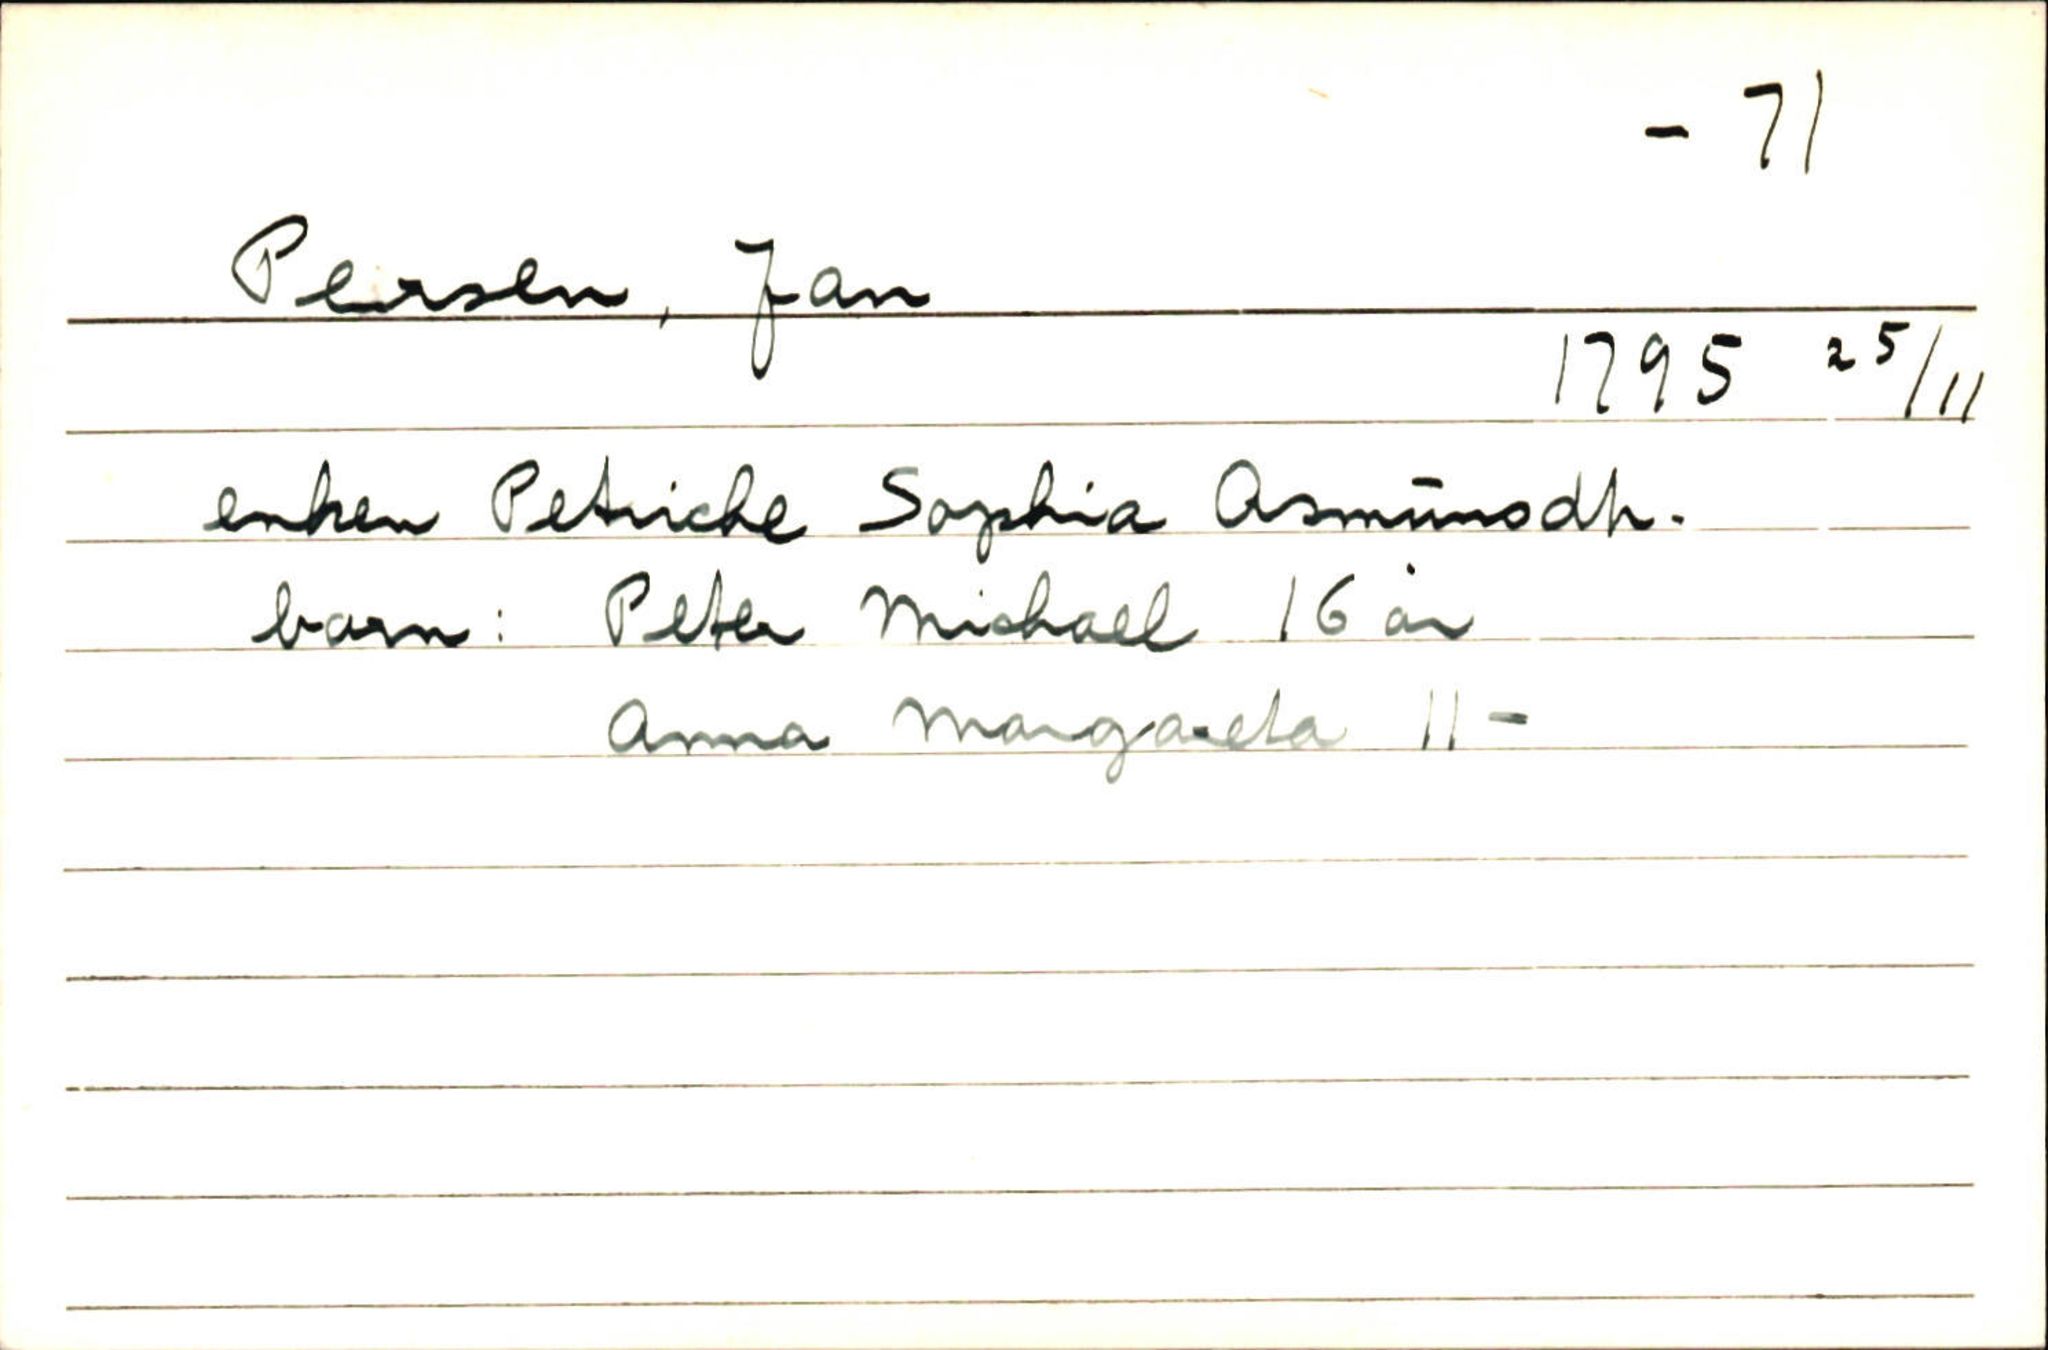 - 71
Persen, Jan
1795 25/11
enken Petriche Sophia Asmūnsdtr.
barn: Peter Michael 16 år
Anna Margareta 11 -